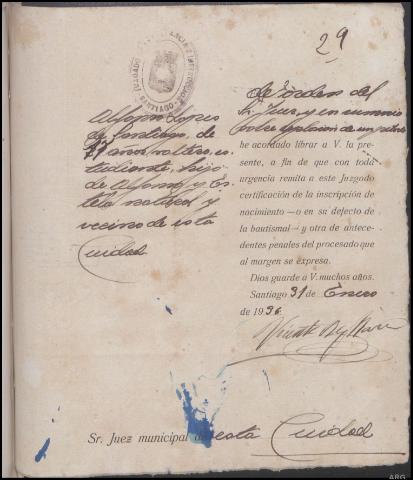 29
JUZGADO DE INSTRUCCION
SANTIAGO
Alfonso López
de Santiago, de
17 años, soltero, es-
tudiante, hijo
de Alfonso y Es-
tela natural y
vecino de esta
Ciudad
De orden del
Sr. Juez, y en sumario
sobre explosión de un petardo
he acordado librar a V. la pre-
sente, a fin de que con toda
urgencia remita a este Juzgado
certificación de la inscripción de
nacimiento—o en su defecto de
la bautismal—y otra de antece-
dentes penales del procesado que
al margen se expresa.
Dios guarde a V. muchos años.
Santiago 31 de Enero
de 1936.
Vicente Rey
Sr. Juez municipal de esta Ciudad
ARG